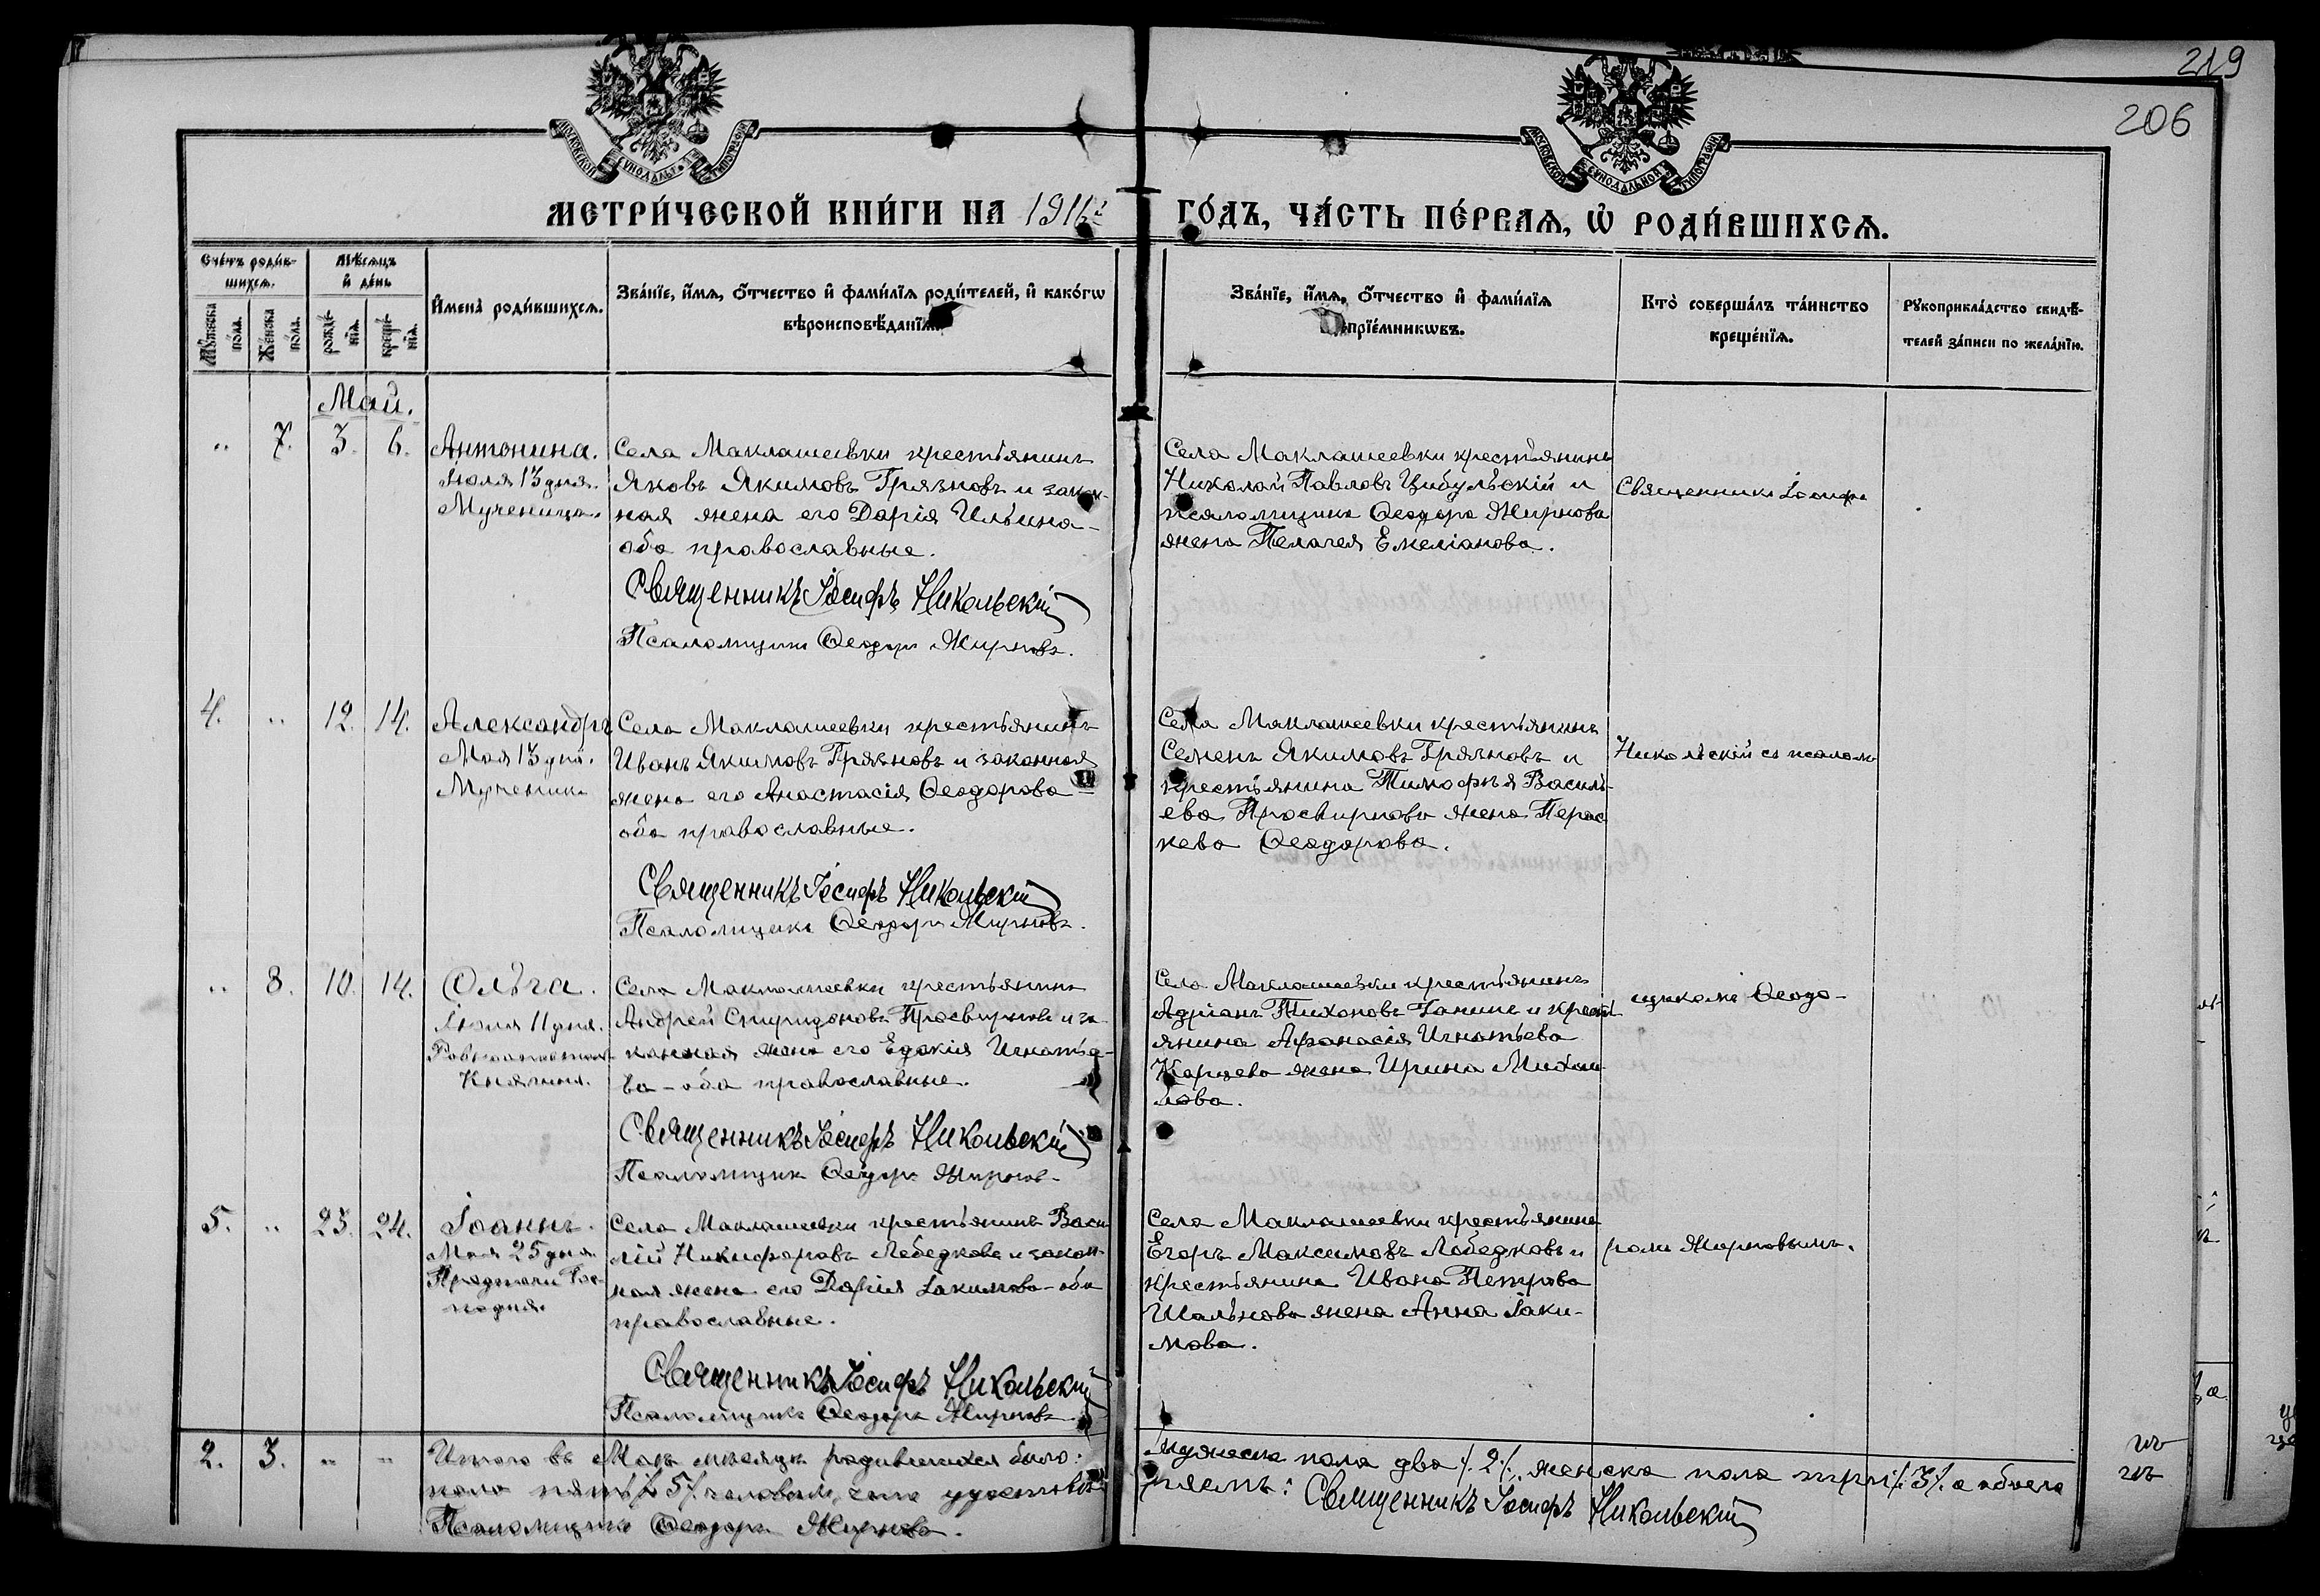 219
206
МОСКОВСКОЙ СѴНОДАЛЬНОЙ ТИПОГРАФІИ
МОСКОВСКОЙ СѴНОДАЛЬНОЙ ТИПОГРАФІИ
МЕТРИ́ЧЕСКОЙ КНИ́ГИ НА 1916й ГО́ДЪ, ЧА́СТЬ ПЕ́РВАЯ, Ѡ҆ РОДИ́ВШИХСѦ.
Сче́тъ роди́в-
шихсѧ.
Мѣ́сѧцъ
и҆ де́нь
Мꙋ́жеска
по́ла.
Же́нска
по́ла.
рожде́-
нїѧ.
креще́-
нїѧ.
И҆мена̀ роди́вшихсѧ.
Зва́нїе, и҆́мѧ, ѻ҆́тчество и҆ фами́лїѧ роди́телей, и҆ како́гѡ
вѣроисповѣ́данїѧ.
Зва́нїе, и҆́мѧ, ѻ҆́тчество и҆ фами́лїѧ
прїе́мникѡвъ.
Кто̀ соверша́лъ та́инство
креще́нїѧ.
Рꙋкоприкла́дство свидѣ́-
телей за́писи по жела́нїю.
Май.
„ 7. 3. 6.
Антонина.
Іюля 13 дня.
Мученица.
Села Маклашеевки крестьянинъ
Яковъ Якимовъ Грязновъ и закон-
ная жена его Дарія Ильина-
оба православные.
Священникъ Іосифъ Никольскій
Псаломщикъ Ѳеодоръ Жирновъ.
Села Маклашеевки крестьянинъ
Николай Павловъ Цибульскій и
псаломщика Ѳеодора Жирнова
жена Пелагея Емеліанова.
Священникъ Іосифъ
4. „ 12. 14.
Александръ
Мая 13 дня.
Мученика
Села Маклашеевки крестьянинъ
Иванъ Якимовъ Грязновъ и законная
жена его Анастасія Ѳеодорова
оба православные.
Священникъ Іосифъ Никольскій
Псаломщикъ Ѳеодоръ Жирновъ.
Села Маклашеевки крестьянинъ
Семенъ Якимовъ Грязновъ и
крестьянина Тимофѣя Василь-
ева Просвирнова жена Парас
кева Ѳеодорова.
Никольскій съ псалом-
„ 8. 10. 14.
Ольга.
Іюля 11 дня.
Равноапостол.
Княгиня.
Села Маклашеевки крестьянинъ
Андрей Спиридоновъ Просвирновъ и за-
конная жена его Евдокія Игнатье-
ва - оба православные.
Священникъ Іосифъ Никольскій
Псаломщикъ Ѳеодоръ Жирновъ.
Села Маклашеевки крестьянинъ
Адріанъ Тихоновъ Ганинъ и кресть-
янина Аѳанасія Игнатьева
Карцева жена Ирина Михаи-
лова.
щикомъ Ѳеодо-
5. „ 23. 24.
Іоаннъ.
Мая 25 дня.
Предтечи Гос-
подня.
Села Маклашеевки крестьянинъ Васи
лій Никифоровъ Лебедковъ и закон-
ная жена его Дарія Іакимова - оба
православные.
Священникъ Іосифъ Никольскій
Псаломщикъ Ѳеодоръ Жирновъ.
Села Маклашеевки крестьянинъ
Егоръ Максимовъ Лебедковъ и
крестьянина Ивана Петрова
Шальнова жена Анна Іаки-
мова.
ромъ Жирновымъ.
2. 3. „ „
Итого въ Маѣ мѣсяцѣ родившихся было: мужеска пола два /. 2 /. женска пола три /. 3 /. а обоего
пола пять /. 5 /. человѣкъ,
Священникъ Іосифъ Никольскій
Псаломщикъ Ѳеодоръ Жирновъ.